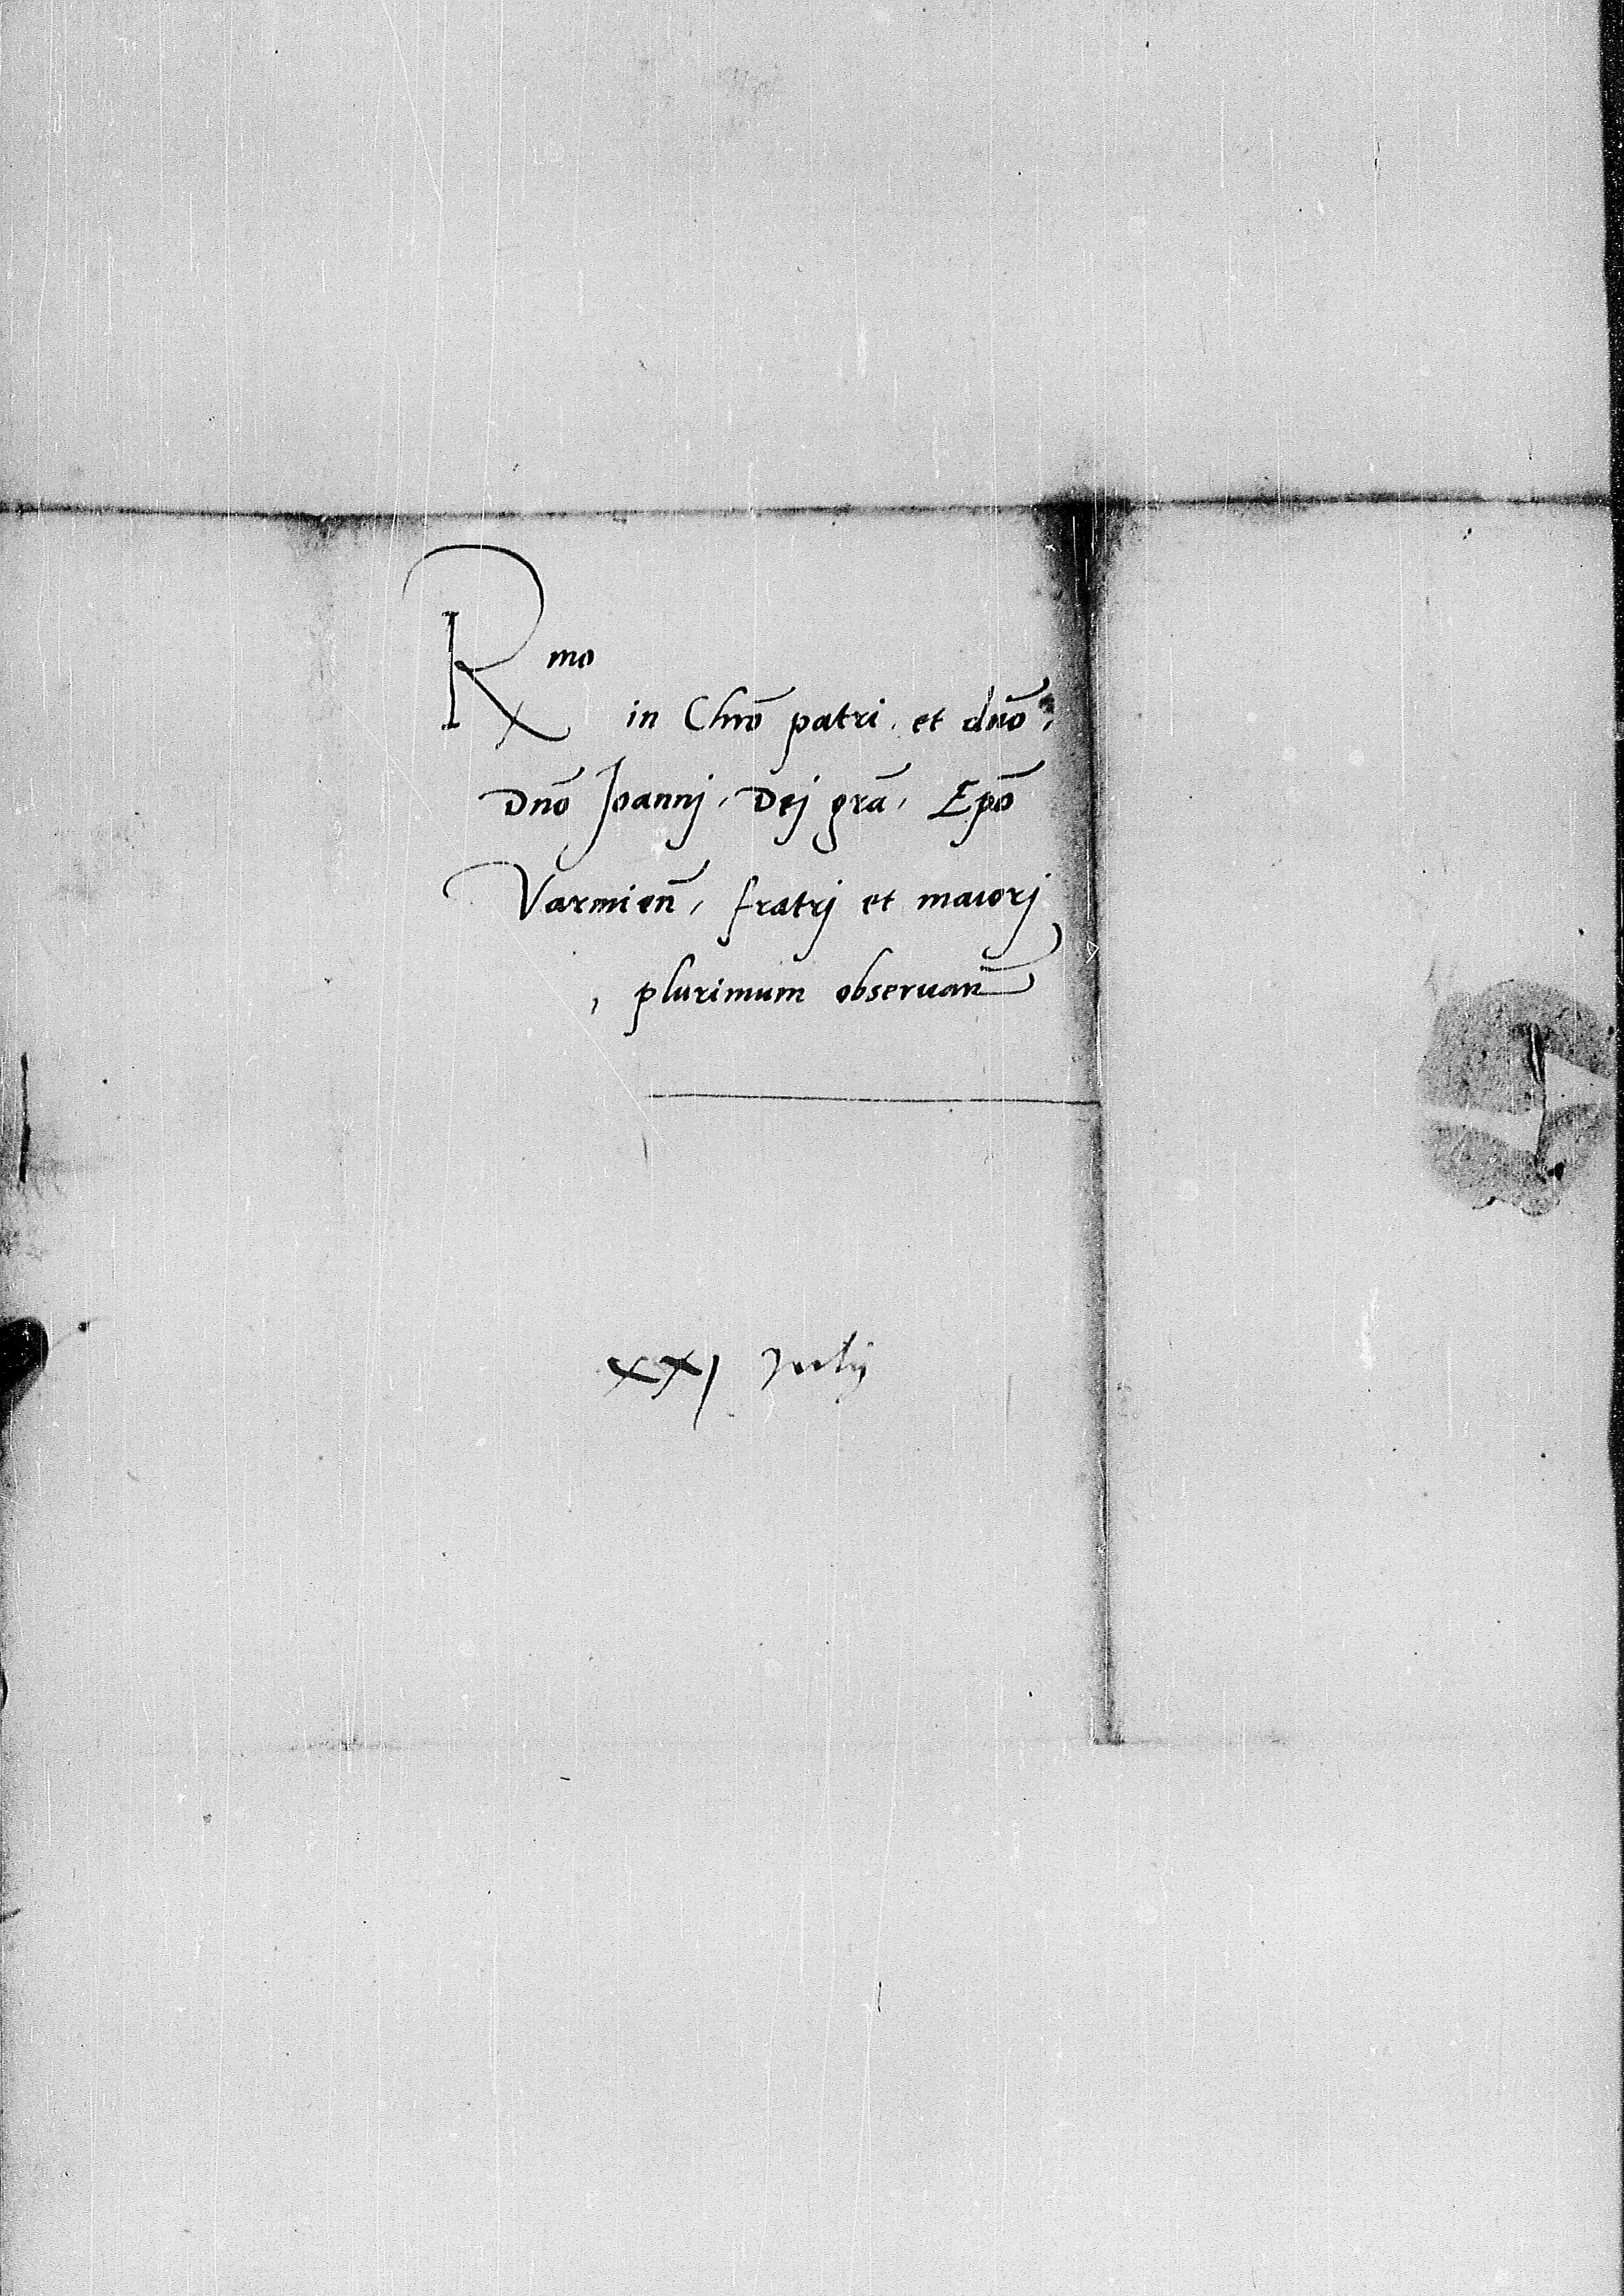 Rmo
in Chro͞ patri, et dno͞,
Dno͞ Joannj, Dej gra͞, Epo͞
Varmien͞, fratrj et maiorj
, plurimum obseruan͞
xxj Julij